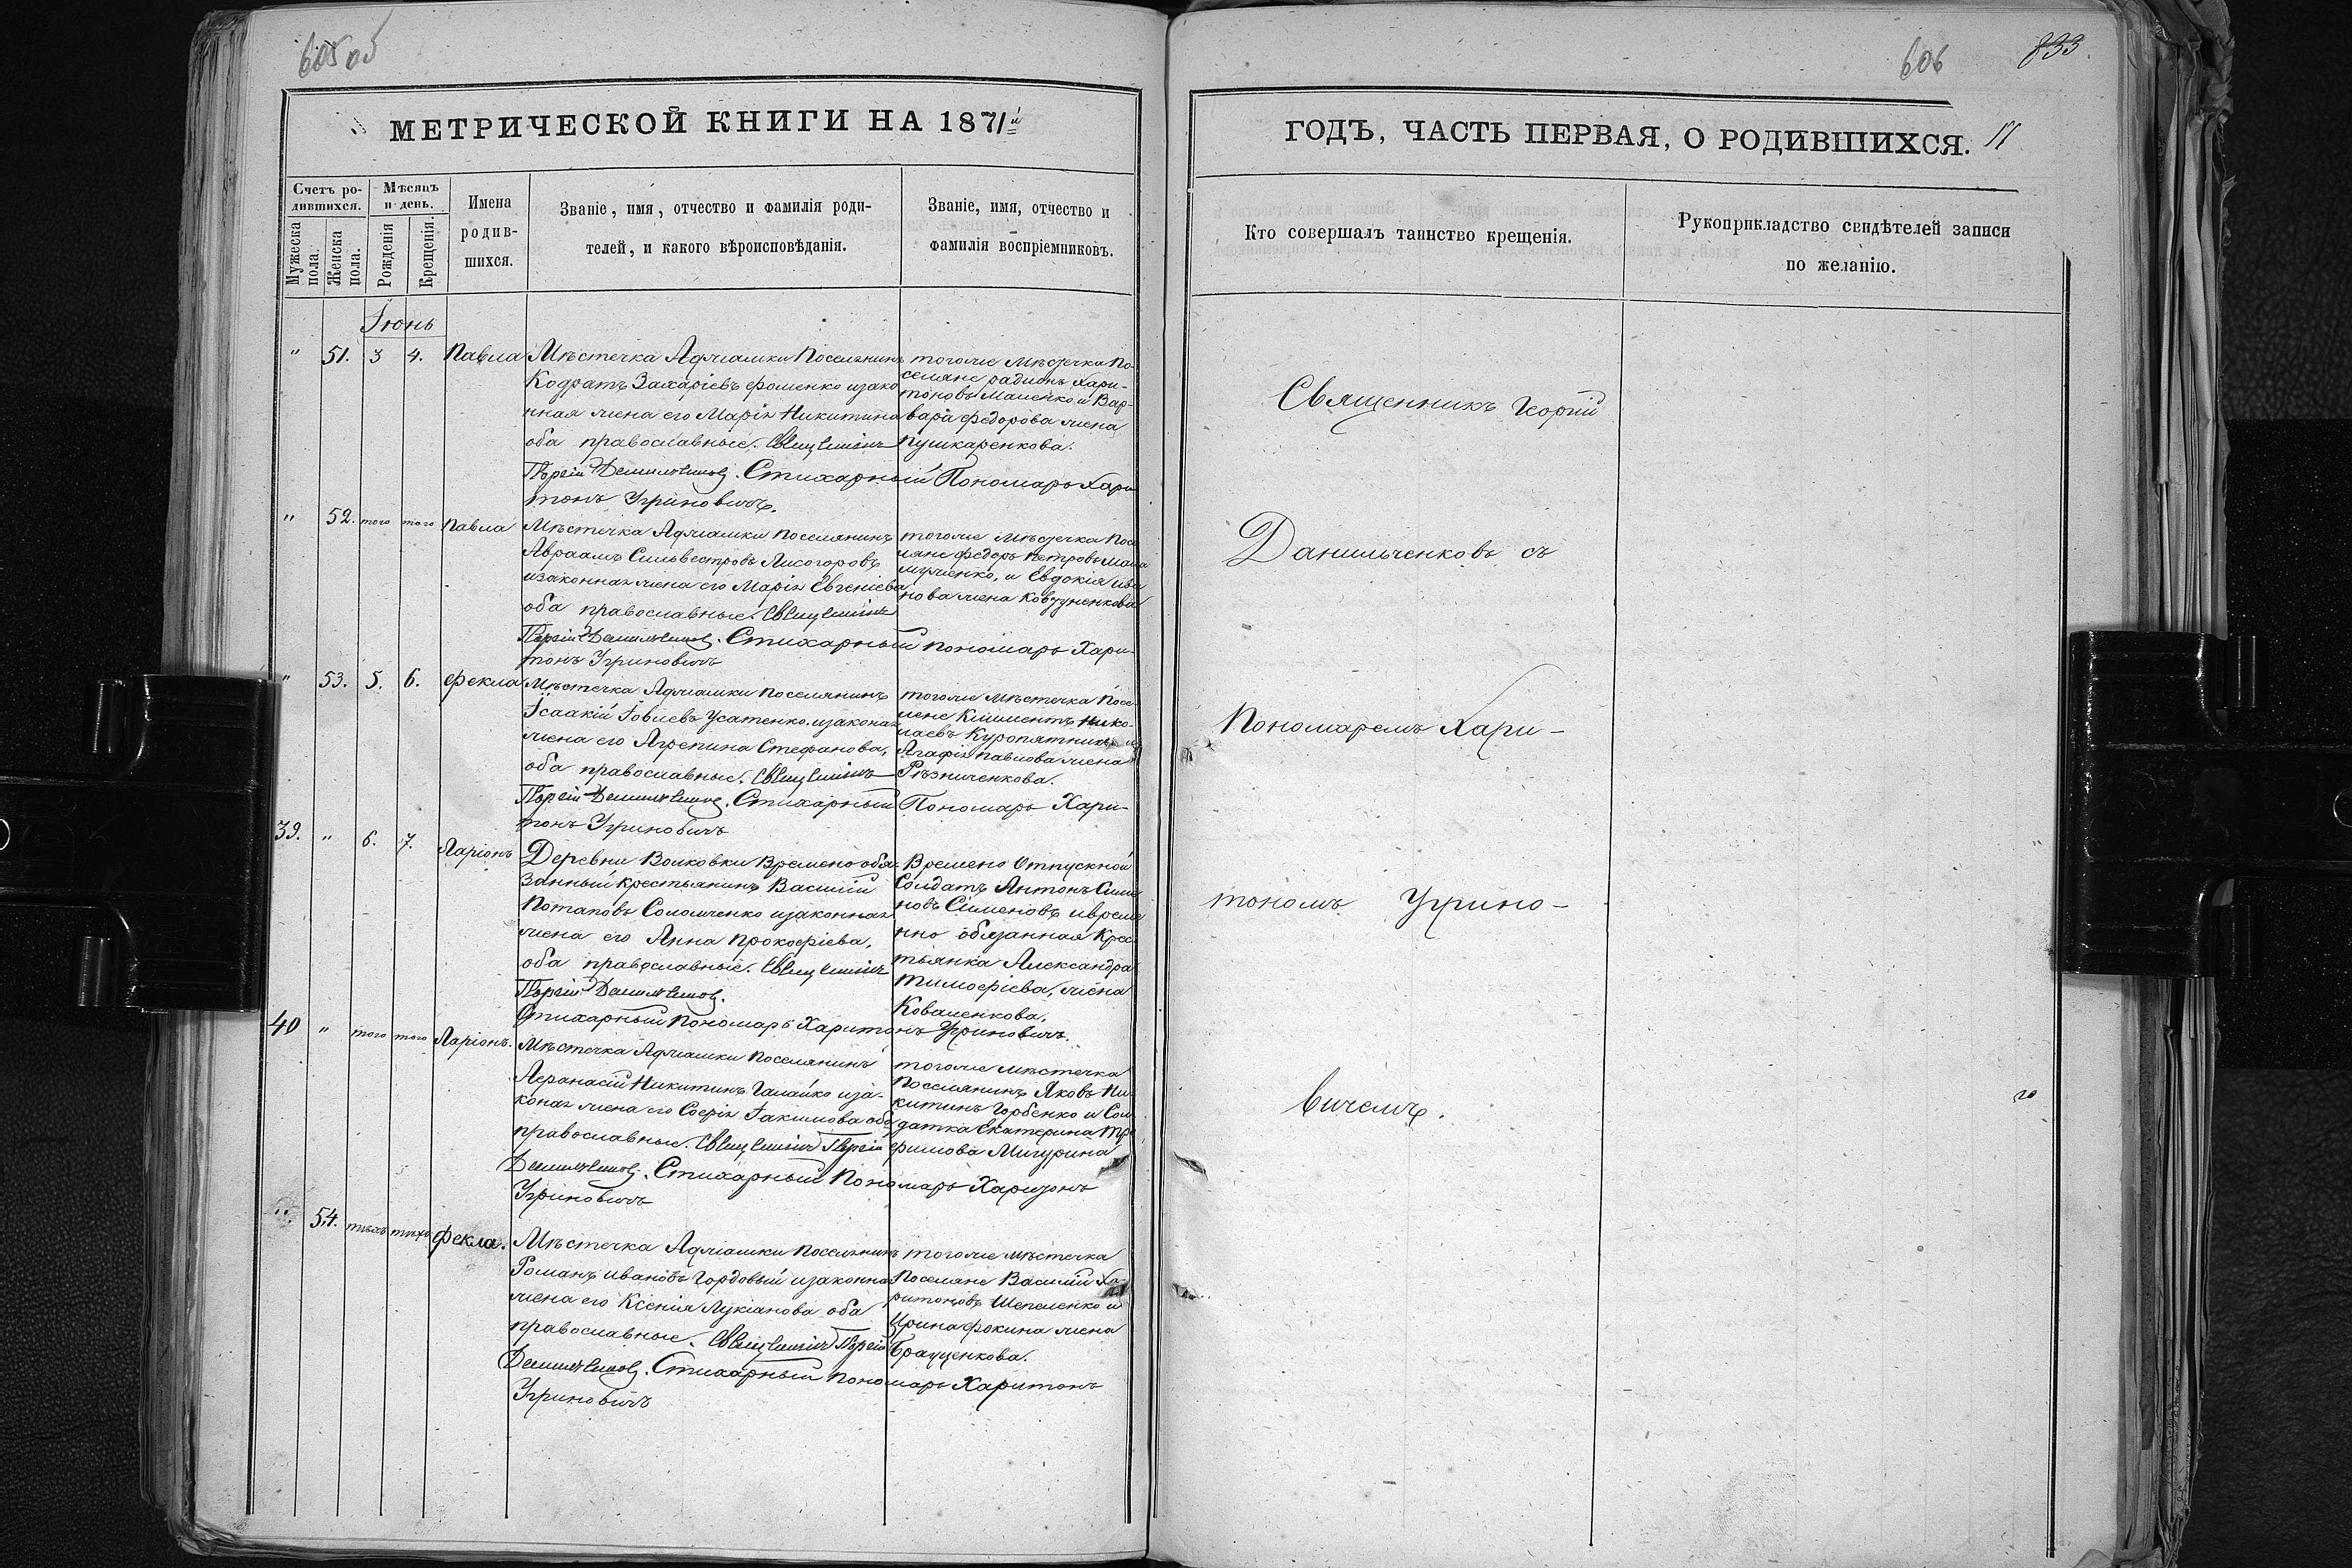 605 об
МЕТРИЧЕСКОЙ КНИГИ НА 1871й
Счетъ ро-
дившихся.
Мѣсяцъ
и день.
Мужеска
пола.
Женска
пола.
Рожденія
Крещенія.
Имена
родив-
шихся.
Званіе, имя, отчество и фамилія роди-
телей, и какого вѣроисповѣданія.
Званіе, имя, отчество и
фамилія воспріемниковъ.
Іюнь
" 51. 3 4. Павла
Мѣстечка Аджамки Поселянинъ
Кодратъ Захаріевъ Фоменко изако
нная жена его Марія Никитина
оба православные. Священникъ
Георгій Данильченковъ. Стихарный Пономарь Хари
тонъ Угриновичъ.
тогоже Мѣстечка По-
селяне радионъ Хари-
тоновъ и Вар-
вара Федорова жена
Пушкаренкова.
" 52. того того Павла
Мѣстечка Аджамки Поселянинъ
Авраамъ Сильвестровъ Лисогоровъ
изаконная жена его Марія Евгеніева
оба православные. Священникъ
Георгій Данильченковъ. Стихарный пономарь Хари-
тонъ Угриновичъ
тогоже Мѣстечка Посе
ляне Федоръ Петровъ
и Евдокія ива
нова жена Ковтуненкова
" 53. 5. 6. Фекла
Мѣстечка Аджамки Поселянинъ
Ісаакій Іовлевъ Усатенко изаконая
жена его Агрепина Стефанова,
оба православные. Священникъ
Георгій Данильченковъ. Стихарный Пономарь Хари-
тонъ Угриновичъ
тогоже Мѣстечка Посе
ляне Климентъ Нико-
лаевъ Куропятникъ и
Агафія Павлова жена
Рѣзниченкова.
39. " 6. 7. Ларіонъ
Деревни Волковки Времено обя-
занный крестьянинъ Василій
Потаповъ Соломченко изаконная
жена его Анна Прокофіева,
оба православные. Священникъ
Георгій Данильченковъ.
Стихарный Пономарь Харитонъ Угриновичъ.
Времено Отпускной
Солдатъ Антонъ Симо
новъ Сименовъ иврем
нно обязанная Крес
тьянка Александра
Тимофіева, жена
Коваленкова.
40 " того того Ларіонъ.
Мѣстечка Аджамки Поселянинъ
Афанасій Никитинъ Галайко иза-
коная жена его Софія Іакимова оба
православные. Священникъ Георгій
Данильченковъ. Стихарный Пономарь Харитонъ
Угриновичъ
тогоже мѣстечка
Поселянинъ Яковъ Ни-
китинъ Горбенко и Сол
датка Екатерина Тро
фимова Мигурина
" 54. тѣхъ тѣхъ Фекла.
Мѣстечка Аджамки Поселянинъ
Романъ Ивановъ Гордовый изаконная
жена его Ксенія Лукіанова оба
православные. Священникъ Георгій
Данильченковъ. Стихарный пономарь Харитонъ
Угриновичъ
тогоже мѣстечка
Поселяне Василій Ха-
ритоновъ Шепеленко и
Ирина Фокина жена
Браценкова.
606 833.
ГОДЪ, ЧАСТЬ ПЕРВАЯ, О РОДИВШИХСЯ. 11
Кто совершалъ таинство крещенія.
Рукоприкладство свидѣтелей записи
по желанію.
Священникъ Георгій
Данильченковъ съ
Пономаремъ Хари-
тономъ Угрино-
вичемъ.